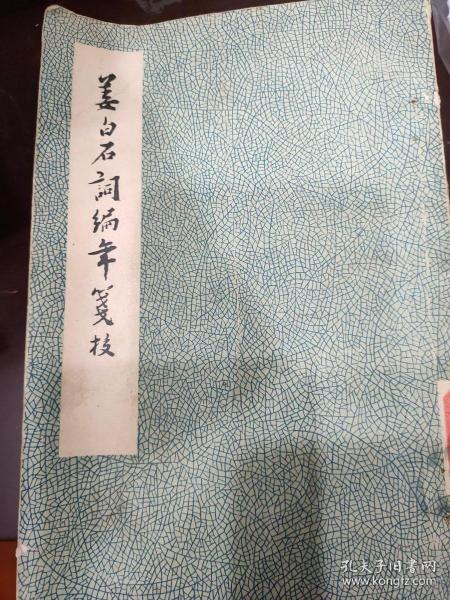 姜白石詞編年箋校
孔夫子旧书网
www.kongfz.com